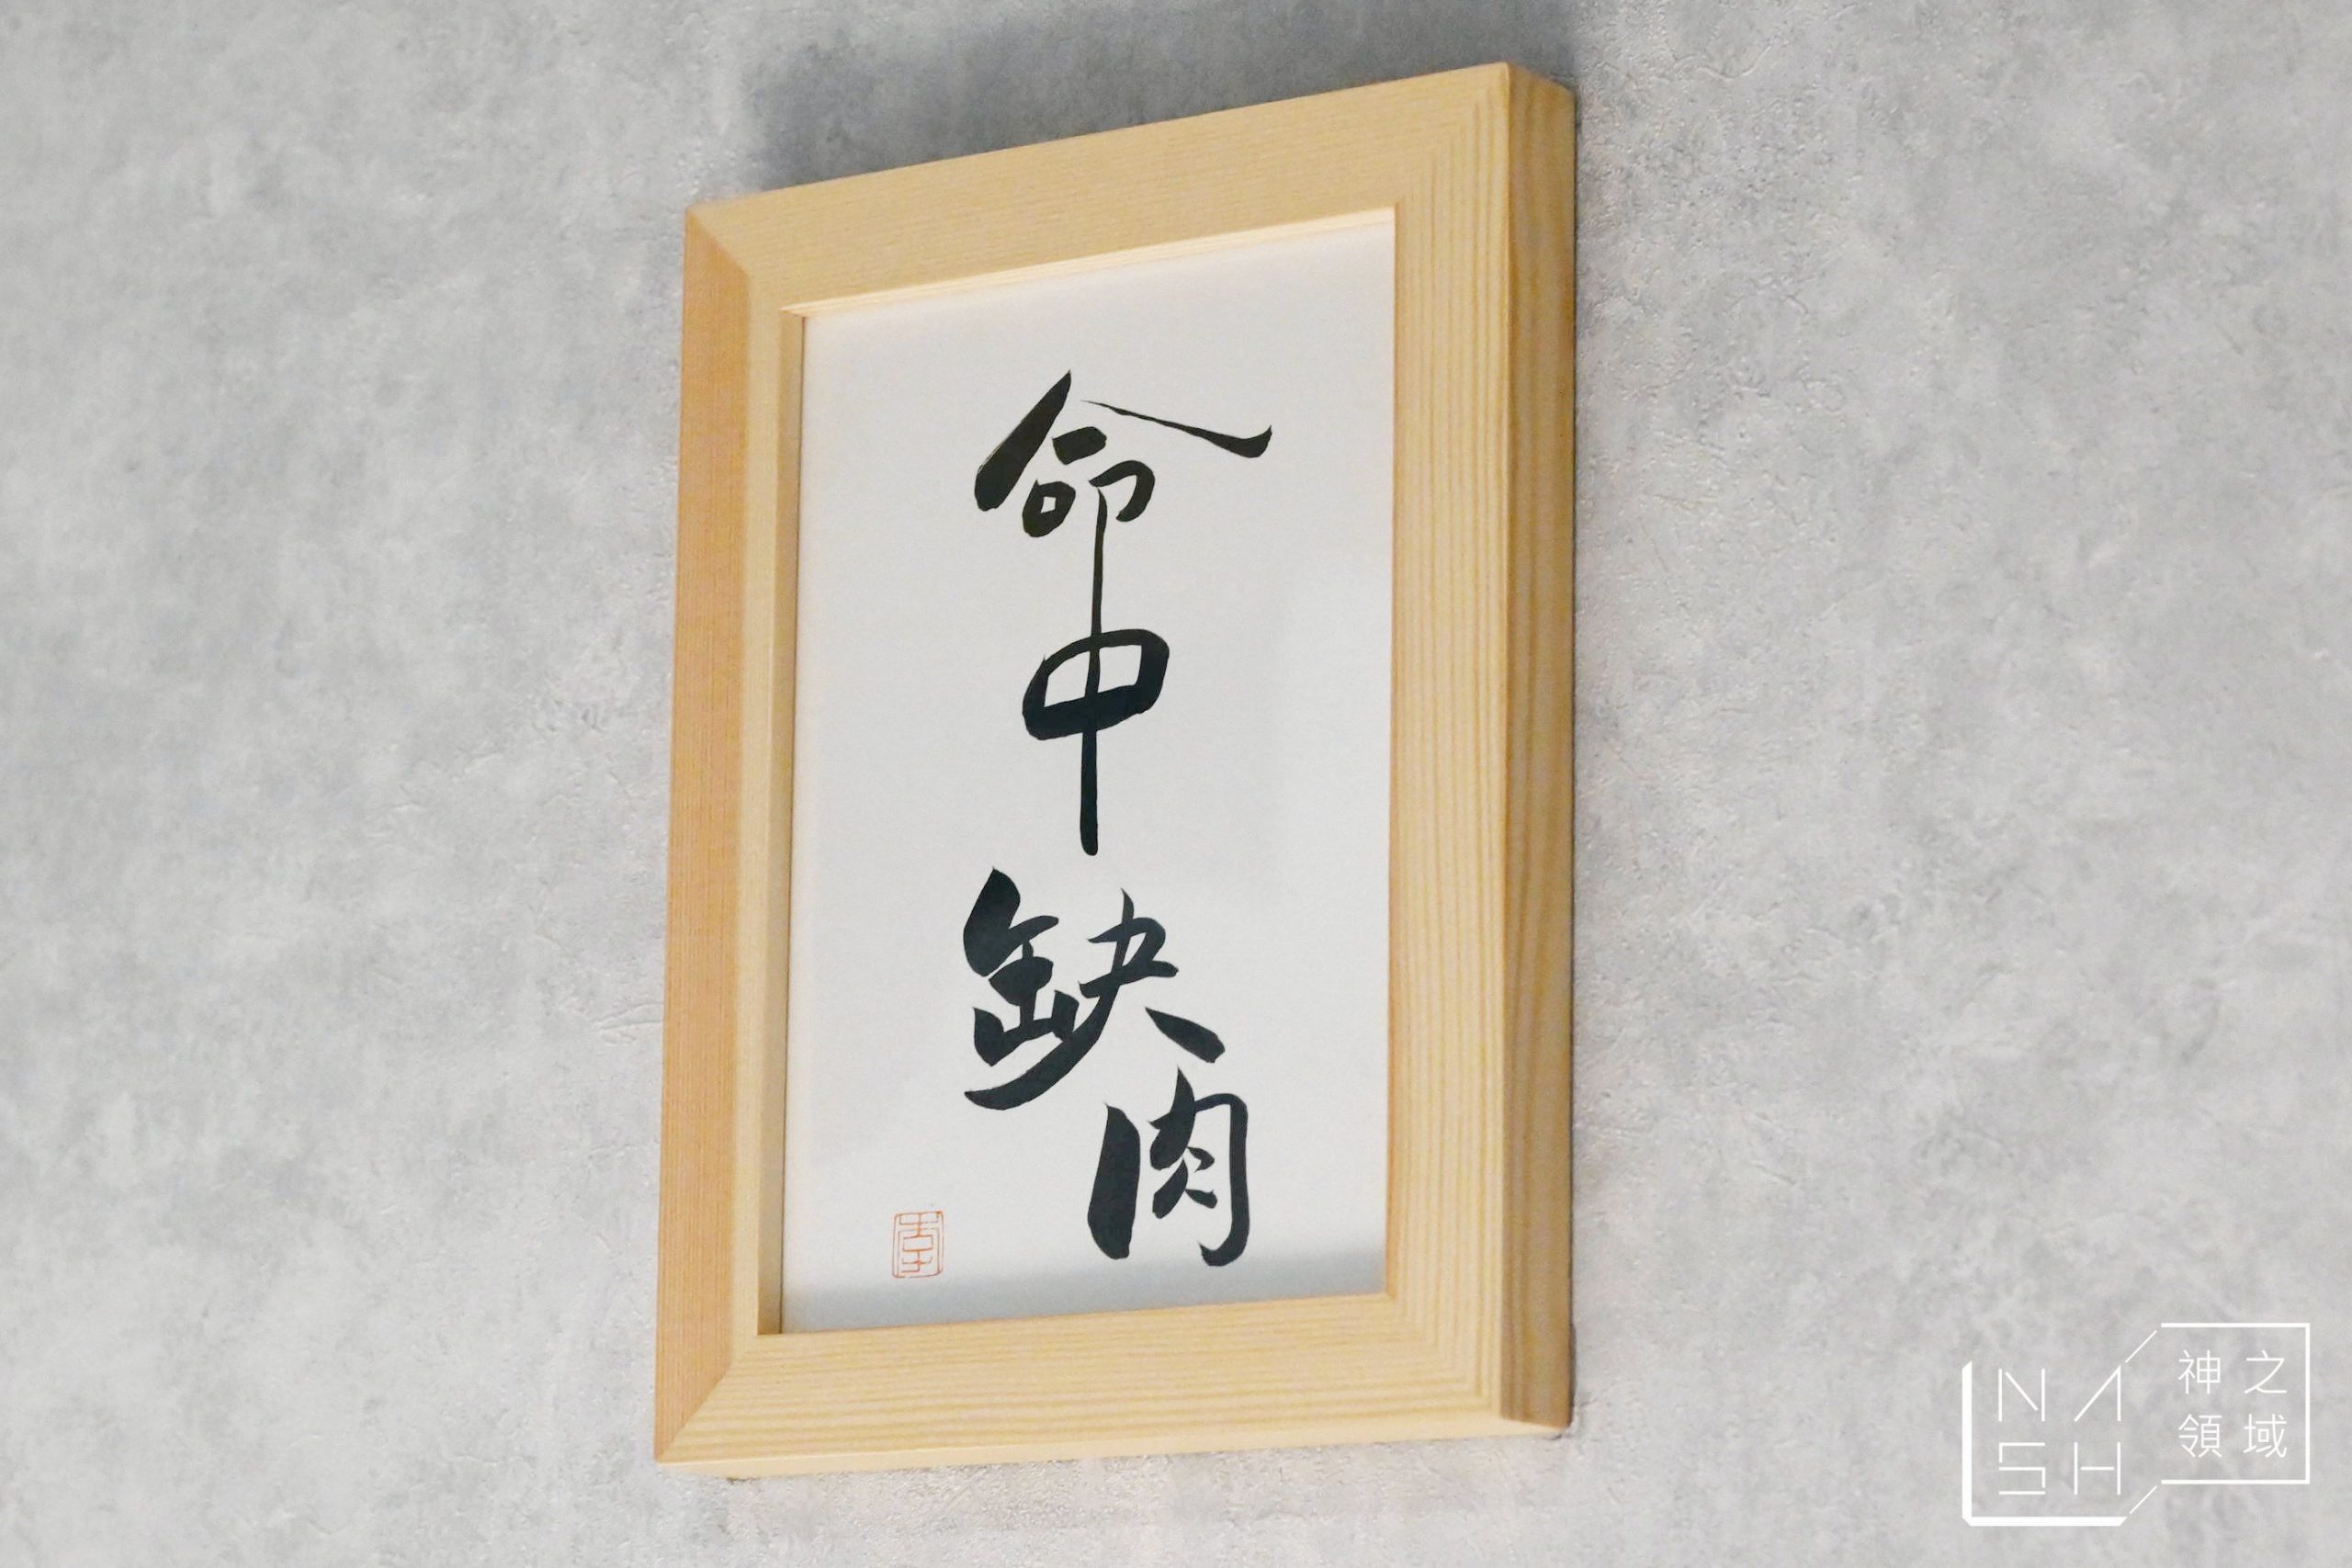 命中缺肉
NASH
神之
領域